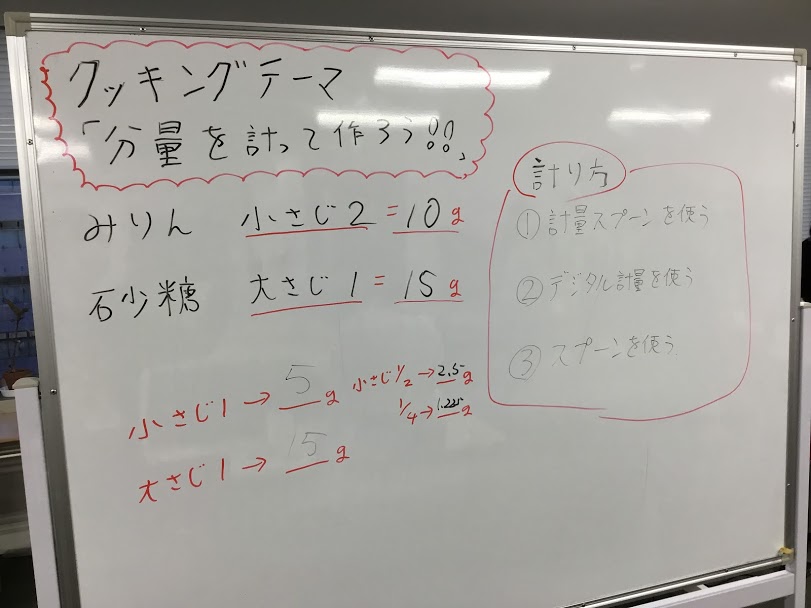 クッキングテーマ
「分量を計って作ろう!!」
みりん 小さじ2=10g
石少糖 大さじ1=15g
小さじ1→5g
小さじ1/2→2.5g
1/4→1.225g
大さじ1→15g
計り方
①計量スプーンを使う
②デジタル計量を使う
③スプーンを使う